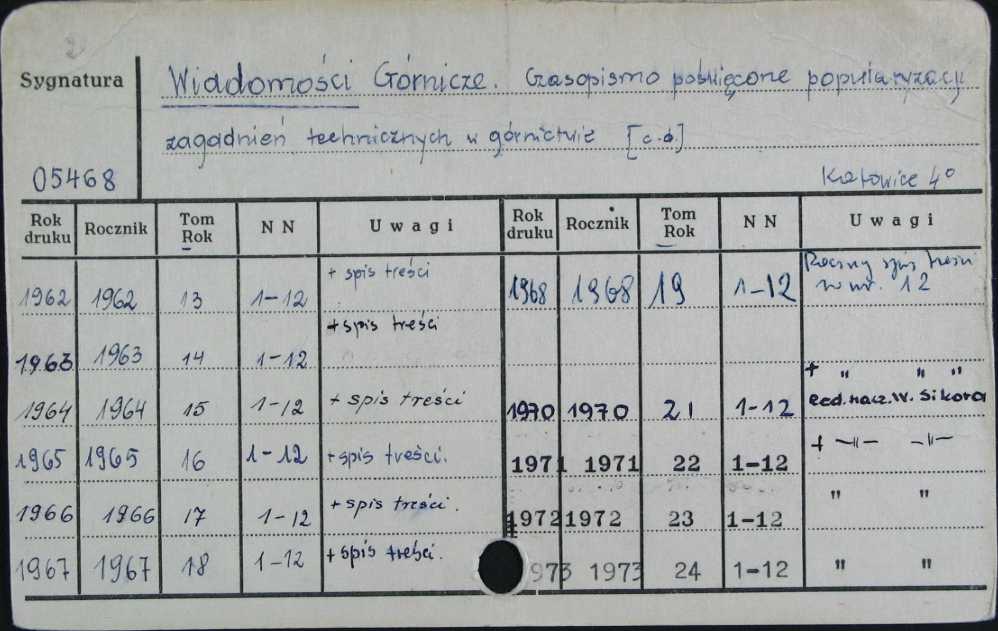 Sygnatura
Wiadomości Górnicze. Czasopismo poświęcone popularyzacji
zagadnień technicznych w górnictwie [c.d.]
05468
Katowice 4°
Rok druku Rocznik Tom Rok N N Uwagi Rok druku Rocznik Tom Rok N N Uwagi
1962 1962 13 1-12 + spis treści 1968 1968 19 1-12 Roczny spis treści
w nr. 12
1963 1963 14 1-12 + spis treści
1964 1964 15 1-12 + spis treści 1970 1970 21 1-12 + " " "
Red. nacz. W. Sikora
1965 1965 16 1-12 + spis treści. 1971 1971 22 1-12 + -"- -"-
1966 1966 17 1-12 + spis treści. 1972 1972 23 1-12 " "
1967 1967 18 1-12 + spis treści. 973 1973 24 1-12 " "